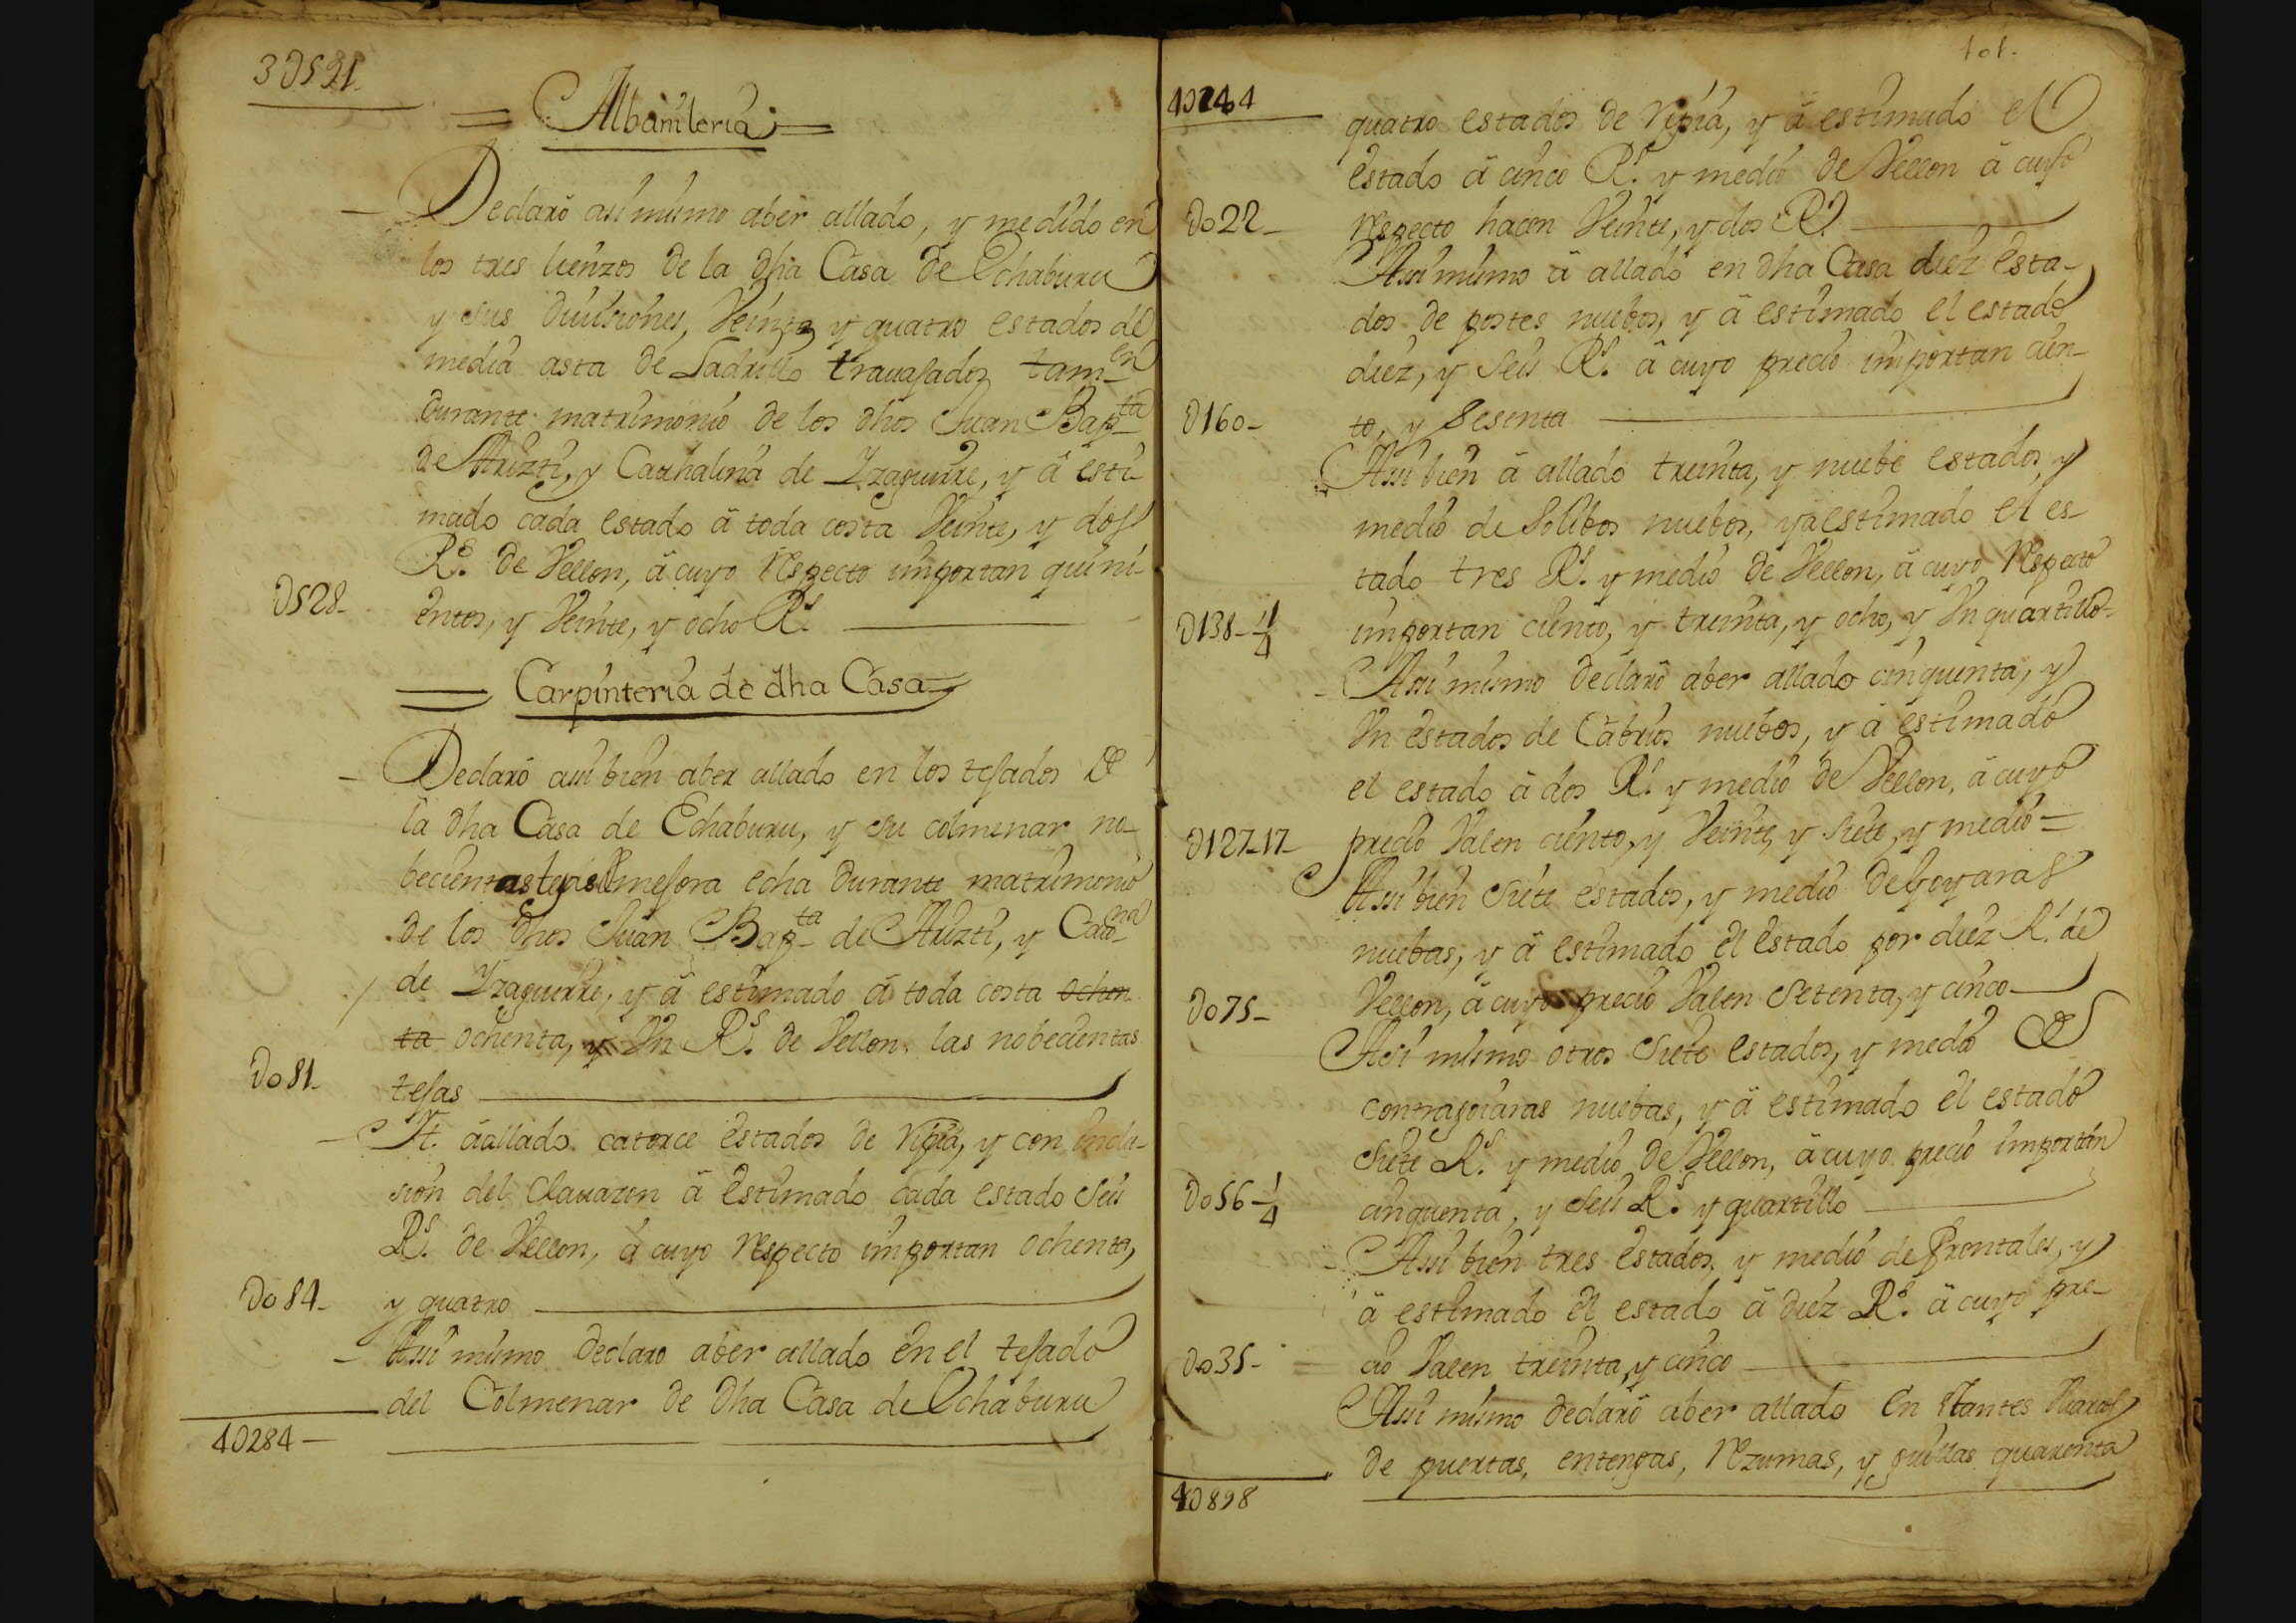 3 D591
= Albañileria =
Declaró asi mismo aber allado, y medido en
los tres lienzos de la dha Casa de Echaburu
y sus diuisiones, Veinte y quatro estados de
media asta de Ladrillo trauajados tam-en
durante matrimonio de los dhos Juan Bapta
de Ariztí, y Cathalina de Yzaguirre, y â esti-
mado cada estado â toda costa Veinte, y dos
Rs. de Vellon, â cuyo respecto importan quini-
D528- entos, y Veinte, y ocho Rs.
= Carpinteria de dha Casa =
Declaró assi bien aber allado en los tejados de
la dha Casa de Echaburu, y su colmenar no-
becientas tejas mejora echa durante matrimonio
de los dhos Juan Bapta de Ariztí, y Catana
de Yzaguirre, y â estimado â toda costa ochen
ta ochenta, y Un Rs. de Vellon las nobecientas
Do81- tejas
Yt. â allado catorce estados de ripia, y con inclu-
sion del Clauazon â estimado cada estado seis
Rs. de Vellon, â cuyo respecto importan ochenta,
Do84- y quatro
Assi mismo declaro aber allado en el tejado
del Colmenar de dha Casa de Echaburu
4D284-
101.
4D284
quatro estados de ripia, y â estimado el
estado â cinco Rs. y medio de Vellon â cuyo
Do22- respecto hacen Veinte, y dos Rs.
Assi mismo â allado en dha Casa diez esta-
dos de postes nuebos, y â estimado el estado
diez, y seis Rs. â cuyo precio importan cien-
D160- to, y sesenta
Assi bien â allado treinta, y nuebe estados, y
medio de Solibos nuebos, y â estimado el es-
tado tres Rs. y medio de Vellon, â cuyo respecto
D138-1/4 importan ciento, y treinta, y ocho, y Un quartillo-
Assi mismo declaró aber allado cinquenta, y
Un estados de Cabrios nuebos, y â estimado
el estado â dos Rs. y medio de Vellon, â cuyo
D127-17- precio Valen ciento, y Veinte, y siete, y medio=
Assi bien siete estados, y medio de goyaras
nuebas, y â estimado el estado por diez Rs. de
Do75- Vellon, â cuyo precio Valen setenta, y cinco
Assi mismo otros siete estados, y medio de
contragoiaras nuebas, y â estimado el estado
siete Rs. y medio de Vellon, â cuyo precio importan
Do56-1/4 cinquenta, y seis Rs. y quartillo
Assi bien tres estados, y medio de frontales, y
â estimado el estado â diez Rs. â cuyo pre-
Do35- cio Valen treinta, y cinco
Assi mismo declaró aber allado en
de puertas, entengas, rezumas, y quarenta
4D898